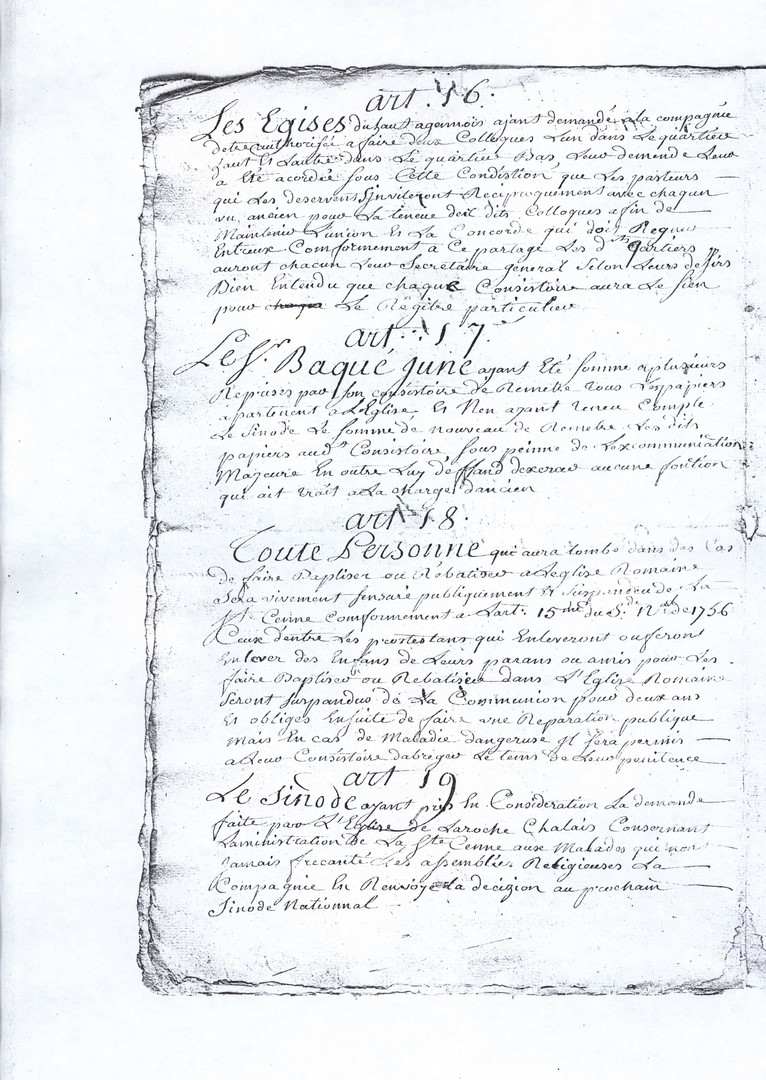 art. 16.
Les Egises du haut agennois ajant demandé a la compagnie
detre authorisée a faire deux Colloques Lun dans Le quartier
haut Et Lautre dans Le quartier Bas, Leur demende Leur
a Eté acordée sous Cette Condistion que Les pasteurs
qui Les deservent s'inviteront Réciproquement avec chaqun
un, ancien pour La tenue des dits Colloques afin de
Maintenir L'union Et La Concorde qui doit Regner
Entreux Comformement a Ce partage Les dits Qartiers
auront chacun Leur Secretaire general Selon Leurs desirs
Bien Entendu que chaque Consistoire aura Le sien
pour Le Régitre particulier
art. 17.
Le Sr. Baqué june ayant Eté somme a plusieurs
Reprises par son consistoire de Remetre tous Les papiers
apartenent a L'Eglise, Et Nen ayant teneu Compte
Le Sinode Le somme de nouveau de Remetre Les dits
papiers aud.t Consistoire sous peinne de Lexcommuniation
Majeure En outre Luy deffand dexercer aucune fontion
qui ait trait a La charge dancien
art 18.
Toute Personne qui aura tombé dans des Cas
de faire Baptiser ou Rébatiser a Leglise Romaine
Sera vivement sensuré publiquement Et Suspendeu de La
Ste Cenne Comformement a Lart: 15me du S: Nal de 1756
Ceux dentre Les protestans qui Enleveront ou feront
Enlever des Enfans de Leurs parans ou amis pour Les
faire Baptiser ou Rebatiser dans L'Eglise Romaine
Seront suspandus de La Communion pour deux ans
Et obliges Ensuite de faire une Reparation publique
Mais En cas de Maladie dangeruse Il sera permis
a Leur Consistoire dabreger Le tems de Leur penitence
art 19
Le Sinode ayant pris En Consideration La demande
faite par L'Eglise de Laroche Chalais Consernant
Laministration de La Ste Cenne aux Malades qui nont
Jamais frecanté Les assemblées Religieuses La
Compagnie En Renvoye La decizion au prochain
Sinode Nationnal